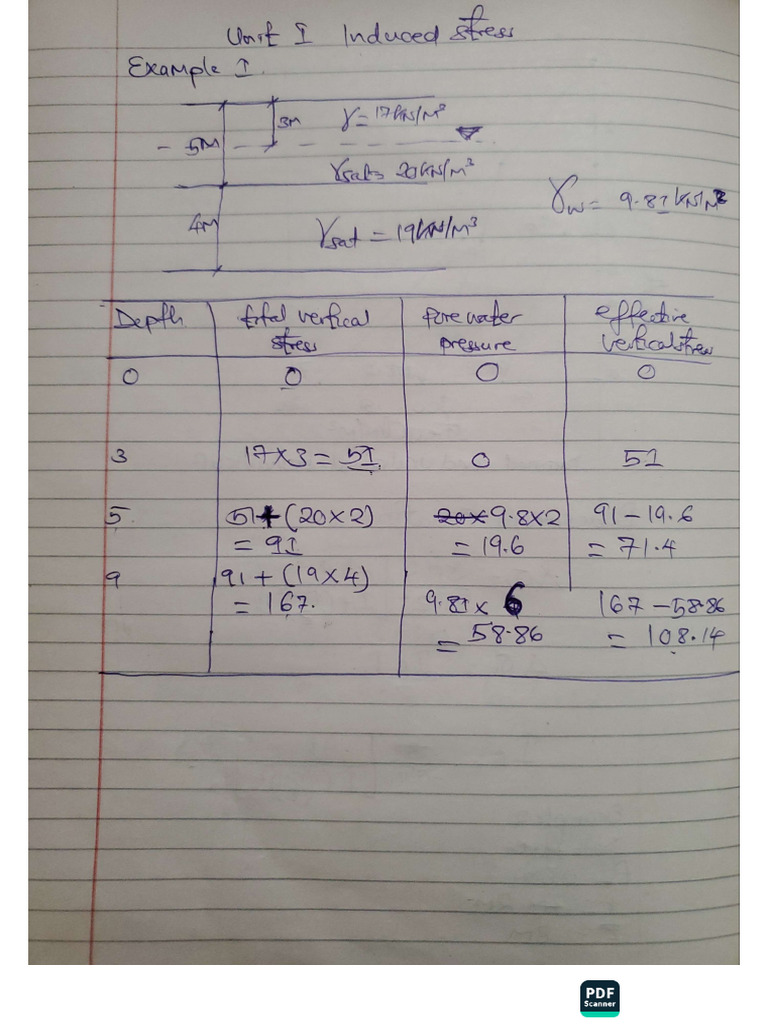 Unit I Induced stress
Example I.
3M γ = 17kN/M³
5M
γsat = 20kN/M³
γw = 9.81kN/M³
4M γsat = 19kN/M³
Depth total vertical stress pore water pressure effective vertical stress
0 0 0 0
3 17×3 = 51 0 51
5 51+(20×2) 20× 9.8×2 91-19.6
= 91 = 19.6 = 71.4
9 91+(19×4) 9.81× 6 167-58.86
= 167. = 58.86 = 108.14
PDF
Scanner